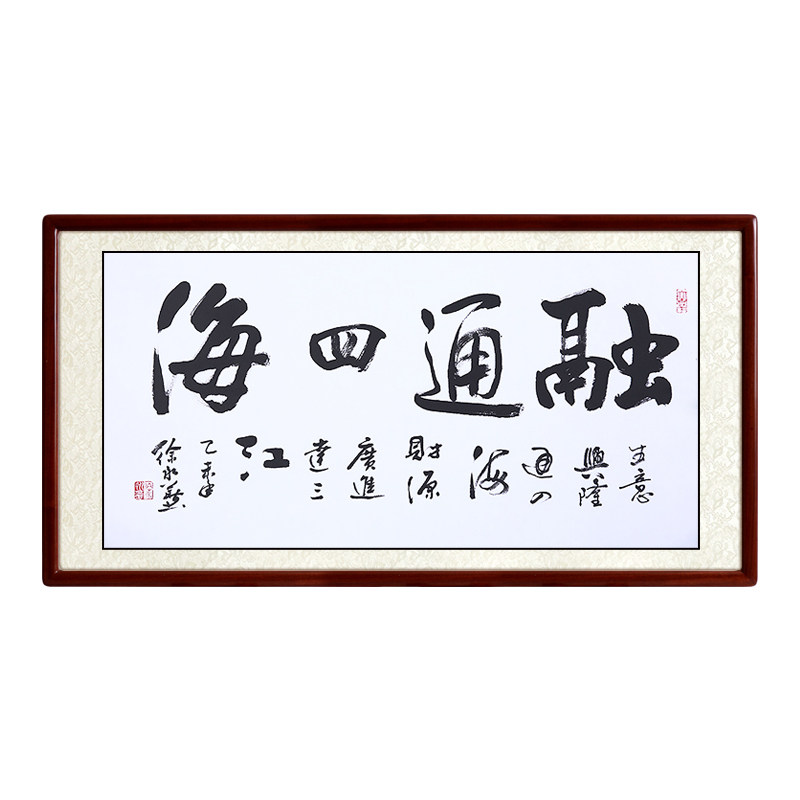 融通四海
生意
興隆
通四
海
財源
廣進
達三
江
乙未年
徐永